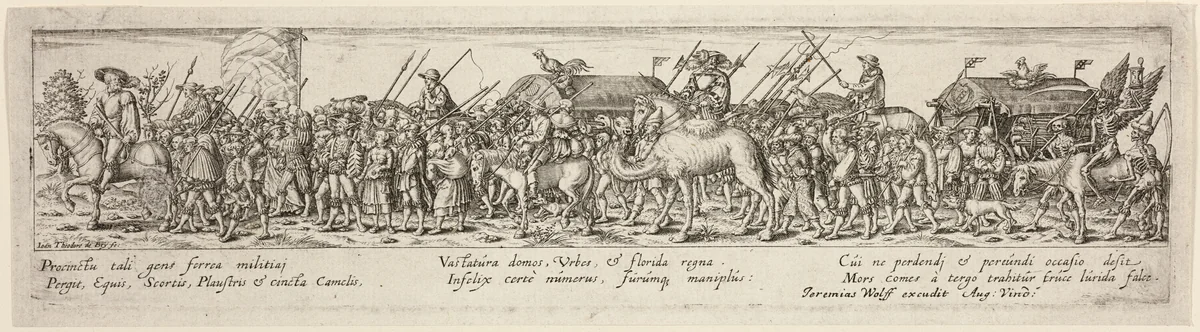 Ioan Theodore de Bry fe:
Procinctu tali gens ferrea militiaj
Pergit, Equis, Scortis, Plaustris & cincta Camelis,
Vastatúra domos, Vrbes, & florida regna.
Infelix certè númerus, fúrúmq; maniplús:
Cúi ne perdendj & pereúndi occasio desit
Mors comes à tergo trahitúr trúce lúrida falce.
Jeremias Wolff excudit Aug: Vind: